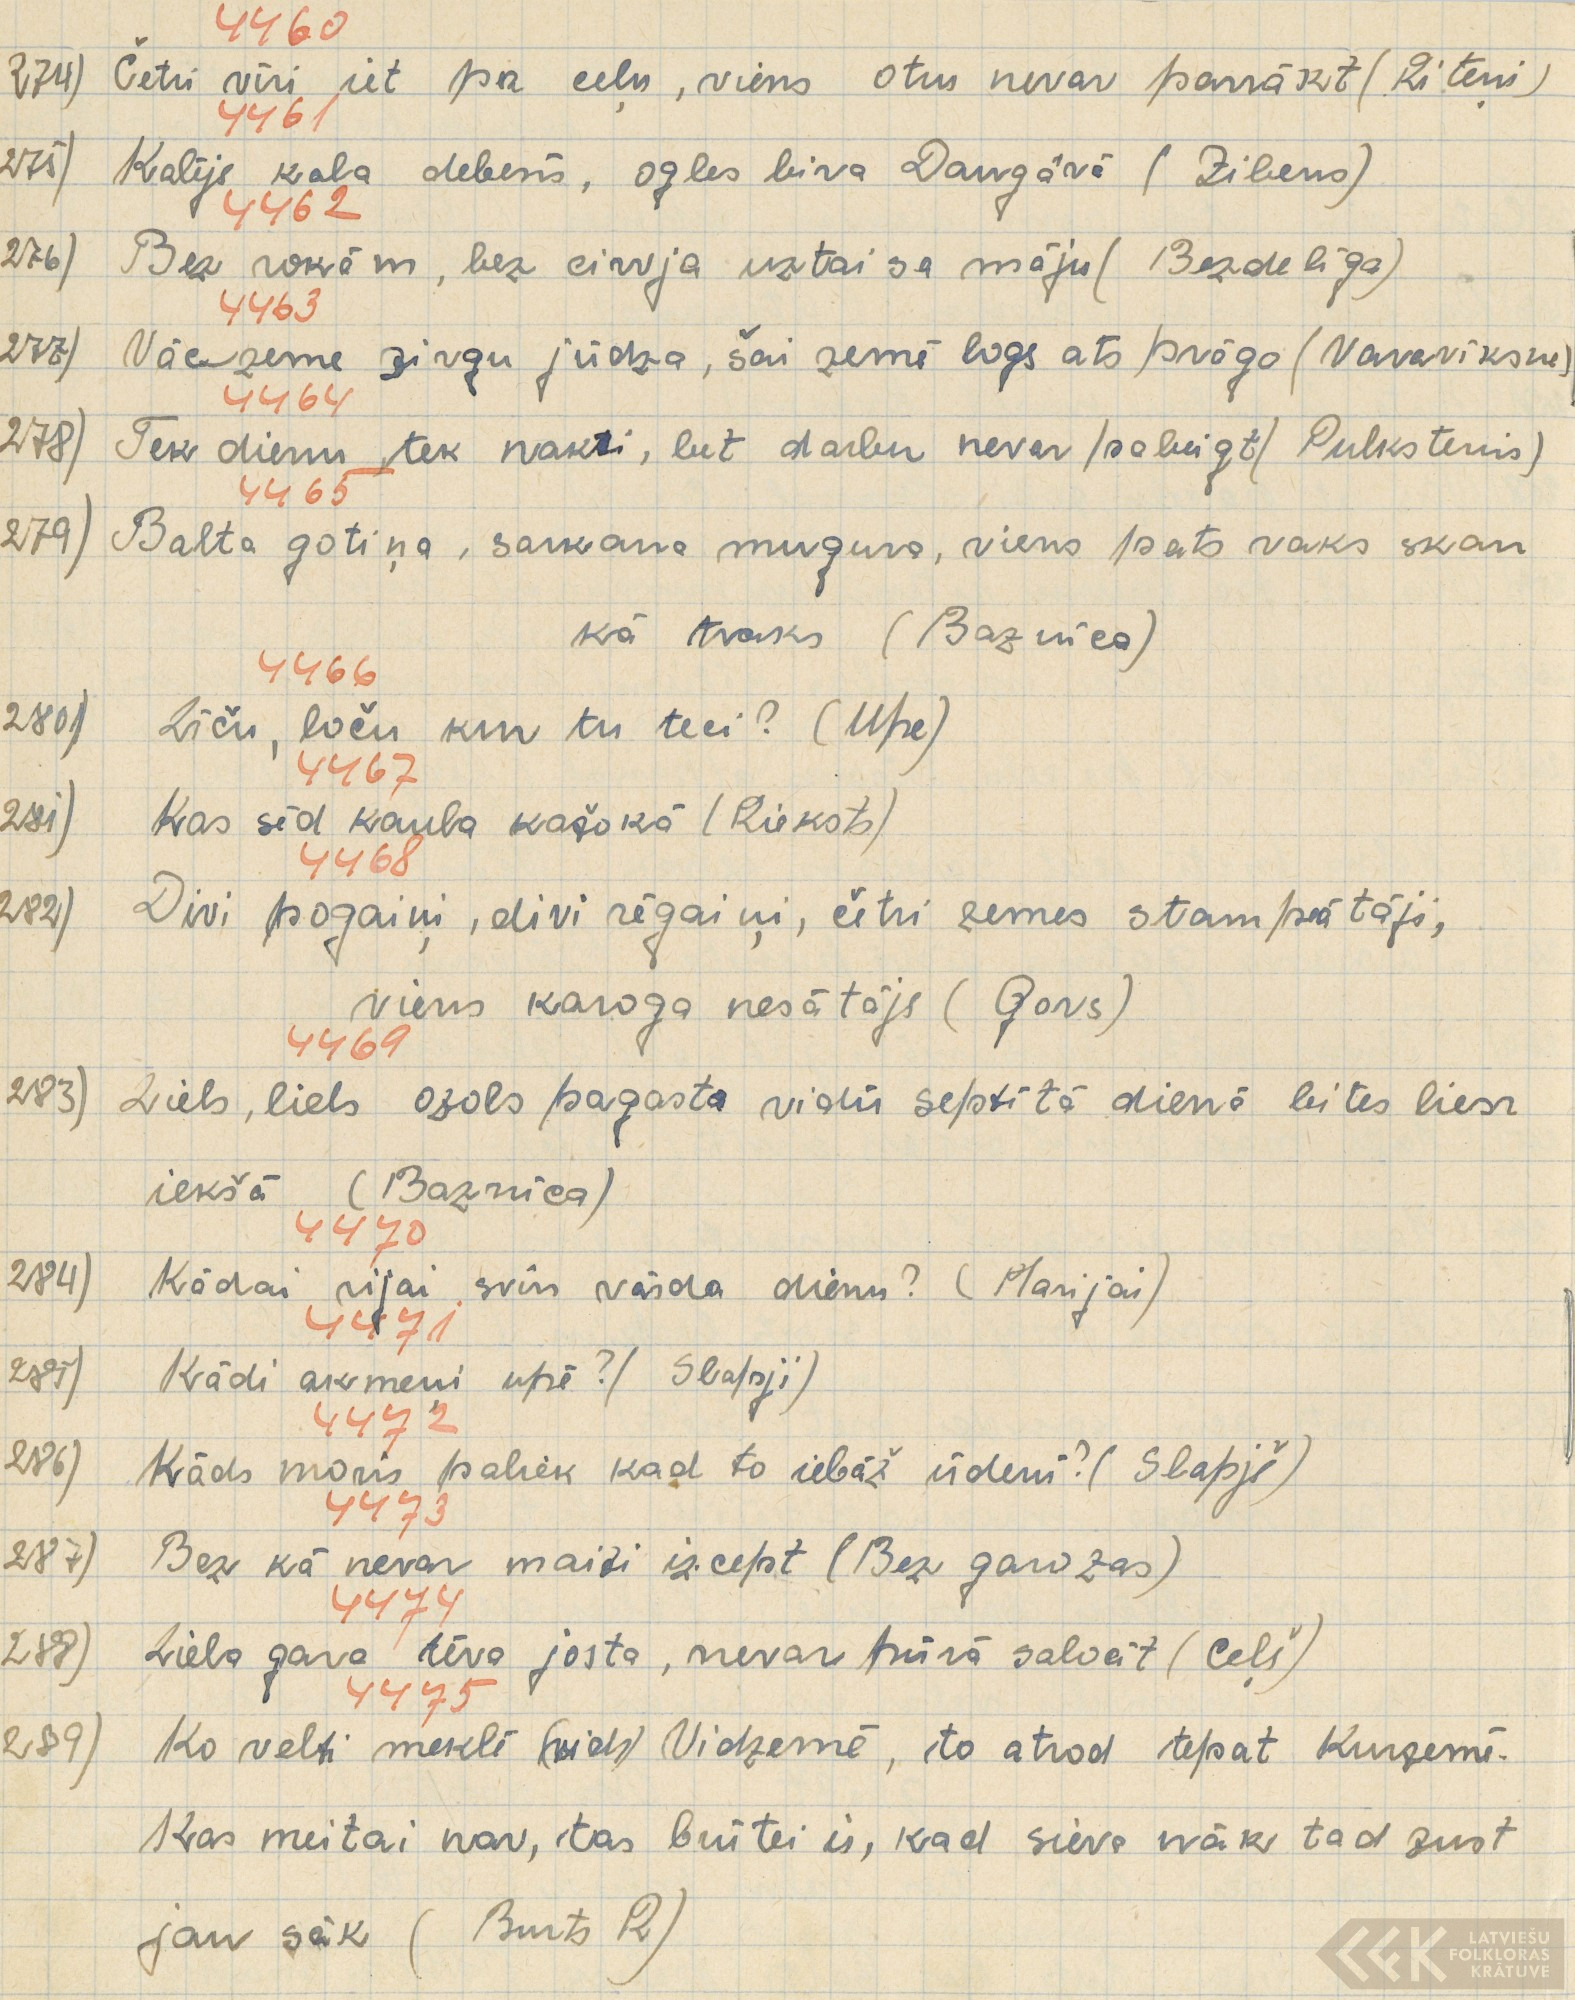 4460
274) Četri vīri iet pa ceļu, viens otru nevar panākt (Riteņi)
4461
275) Kalējs kala debesīs, ogles bira Daugavā (Zibens)
4462
276) Bez rokām, bez cirvja uztaisa māju (Bezdelīga)
4463
277) Vāczeme zirgu jūdza, šai zemē logs ats prāga (Varavīksne)
4464
278) Tek dienu, tek nakti, bet darbu nevar pabeigt (Pulkstenis)
4465
279) Balta gotiņa, sarkana mugura, viens pats raks skan
kā traks (Baznīca)
4466
280) Līču, loču kur tu teci? (Upe)
4467
281) Kas sēd kaula kažokā (Rieksts)
4468
282) Divi pogaiņi, divi rēgaiņi, četri zemes stampātāji,
viens karoga nesātājs (Govs)
4469
283) Liels, liels ozols pagasta vidū septītā dienā bites lien
iekšā (Baznīca)
4470
284) Kādai rijai svin vārda dienu? (Marijai)
4471
285) Kādi akmeņi upē? (Slapji)
4472
286) Kāds moris paliek kad to iebāž ūdenī? (Slapjš)
4473
287) Bez kā nevar maizi izcept (Bez garozas)
4474
288) Liela gara tēva josta, nevar pūrā salocīt (Ceļš)
4475
289) Ko velti meklē Vidzemē, to atrod tepat Kurzemē.
Kas meitai nav, tas brūtei ir, kad sieva nāk tad zust
jau sāk (Burts R)
LATVIEŠU
FOLKLORAS
KRĀTUVE